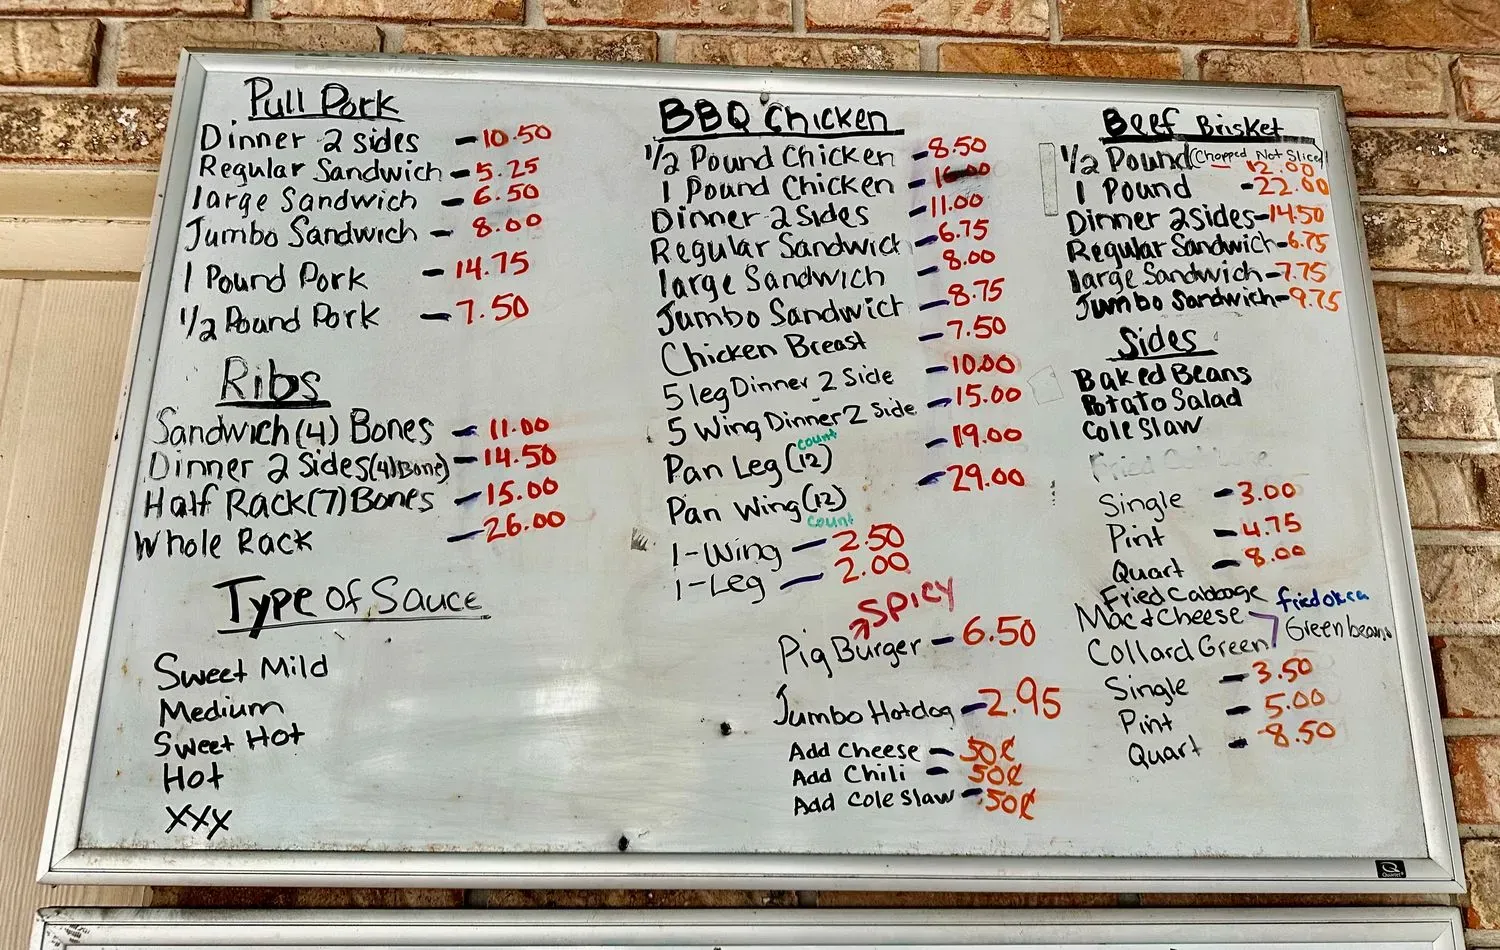 Pull Pork
Dinner 2 sides - 10.50
Regular Sandwich - 5.25
large Sandwich - 6.50
Jumbo Sandwich - 8.00
1 Pound Pork - 14.75
1/2 Pound Pork - 7.50
Ribs
Sandwich (4) Bones - 11.00
Dinner 2 Sides (4) Bone) - 14.50
Half Rack (7) Bones - 15.00
Whole Rack - 26.00
Type of Sauce
Sweet Mild
Medium
Sweet Hot
Hot
XXX
BBQ Chicken
1/2 Pound Chicken - 8.50
1 Pound Chicken -
Dinner 2 Sides - 11.00
Regular Sandwich - 6.75
large Sandwich - 8.00
Jumbo Sandwich - 8.75
Chicken Breast - 7.50
5 leg Dinner 2 Side - 10.00
5 Wing Dinner 2 Side - 15.00
Pan Leg (12) count - 19.00
Pan Wing (12) count - 29.00
1-Wing - 2.50
1-Leg - 2.00
SPICY
Pig Burger - 6.50
Jumbo Hotdog - 2.95
Add Cheese - 50¢
Add Chili - 50¢
Add Coleslaw - .50¢
Beef Brisket
1/2 Pound (Chopped Not Sliced) - 12.00
1 Pound - 22.00
Dinner 2 Sides - 14.50
Regular Sandwich - 6.75
large Sandwich - 7.75
Jumbo Sandwich - 9.75
Sides
Baked Beans
Potato Salad
Cole Slaw
Single - 3.00
Pint - 4.75
Quart - 8.00
Fried Cabbage
fried okra
Mac & Cheese
Green beans
Collard Green
Single - 3.50
Pint - 5.00
Quart - 8.50
Quartet